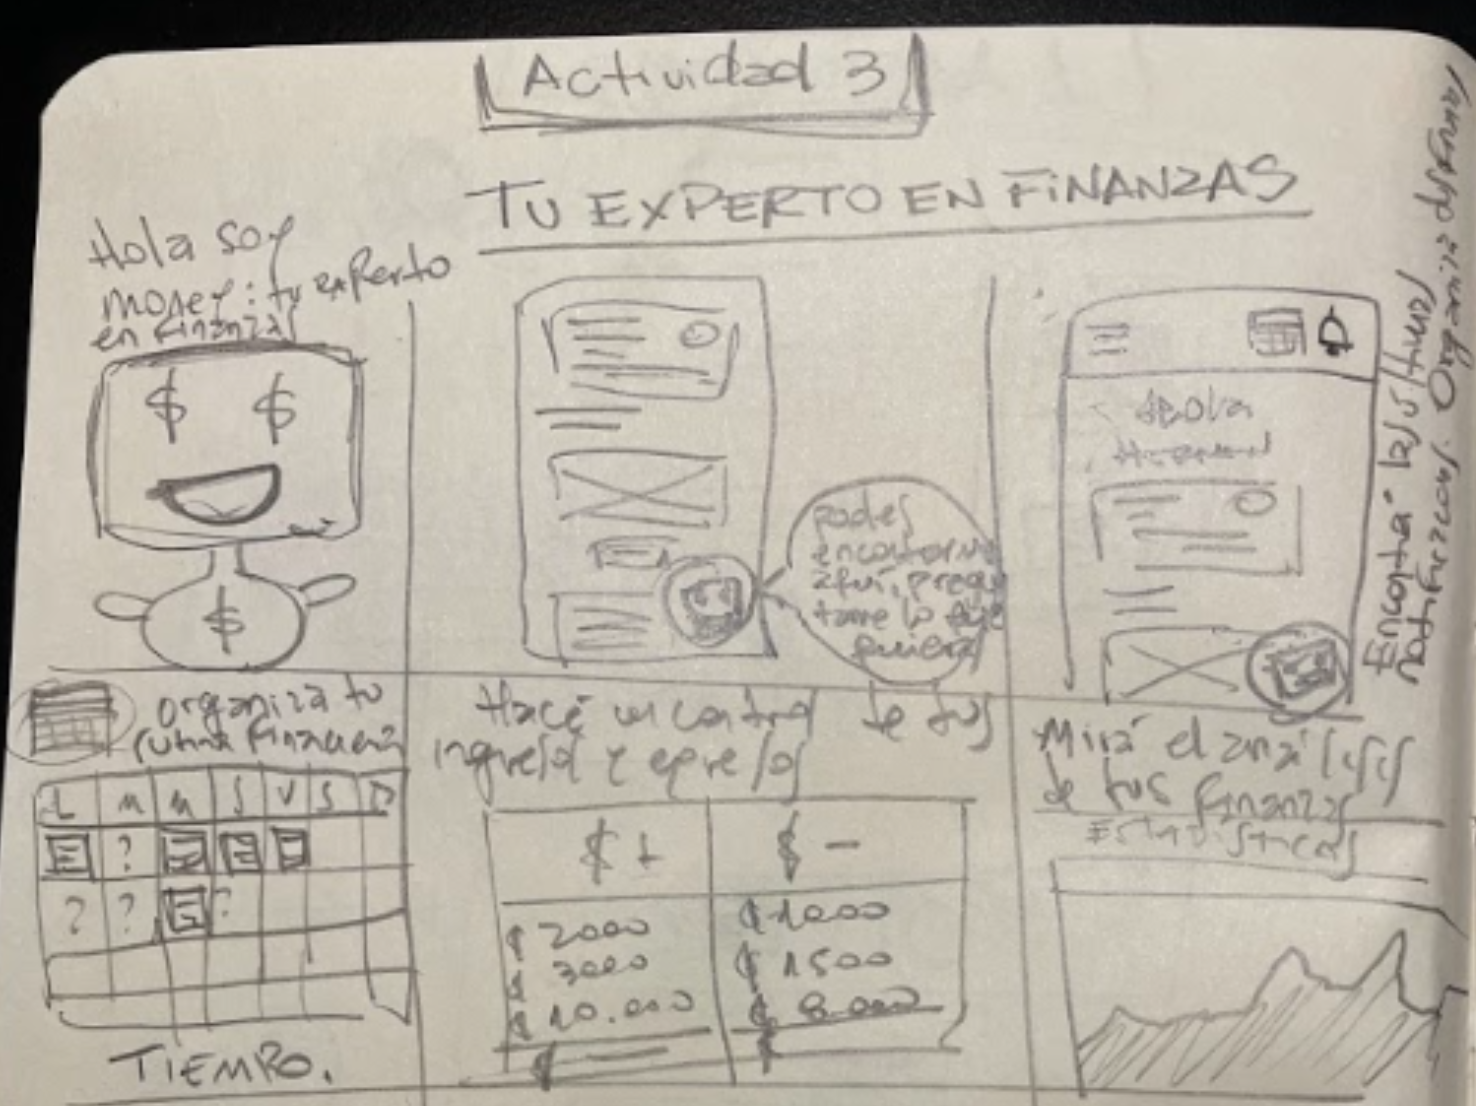 Actividad 3
TU EXPERTO EN FINANZAS
Hola soy
money: tu experto
en finanzas
$ $
$
podes
encontarme
aquí, pregu
tame lo que
quieras
Hola
Encontrá las últimas
notificaciones
Organizá tu
rutina financiera
L M M J V S D
?
? ? ?
TIEMPO.
Hacé un control de tus
ingresos y egresos
$ + $ -
$ 2000 $ 1000
$ 3000 $ 1500
$ 10.000 $ 8.000
$ $
Mirá el análisis
de tus finanzas
Estadísticas